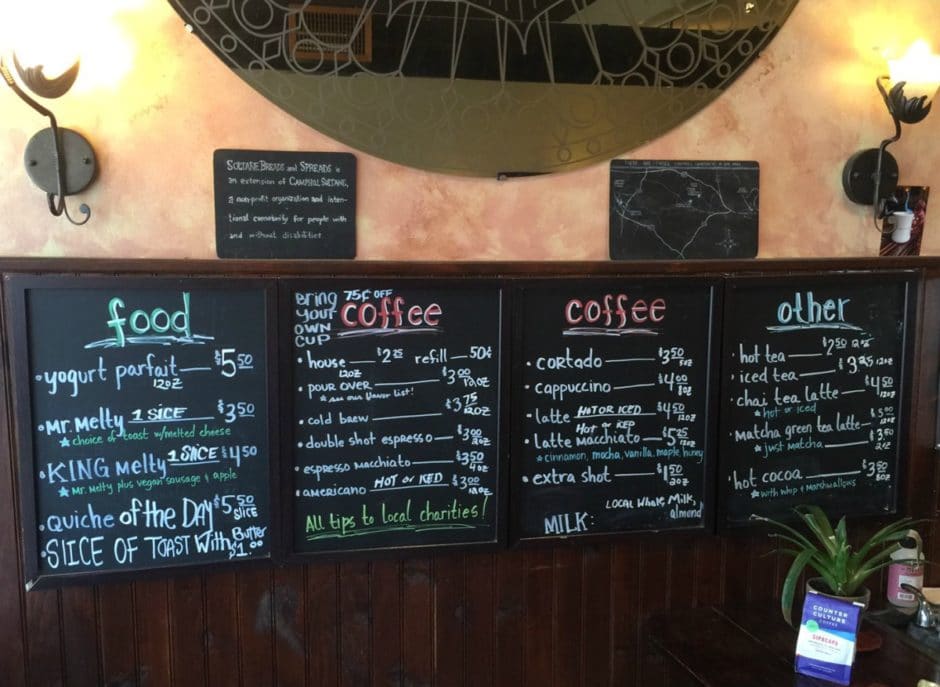 SOLTANE BREADS and SPREADS is
an extension of CAMPHILL SOLTANE,
a nonprofit organization and inten-
tional community for people with
and without disabilities.
food
yogurt parfait — $5.50
12oz
Mr. Melty 1 SLICE — $3.50
choice of toast w/melted cheese
KING Melty 1 SLICE $4.50
Mr. Melty plus vegan sausage & apple
Quiche of the DAY $5.50
SLICE
SLICE OF TOAST With Butter
$1.00
BRING YOUR OWN CUP 75¢ OFF
coffee
house — $2.25 refill — 50¢
12oz
POUR OVER — $3.00
12oz
see our flavor list!
cold brew — $3.75
12oz
double shot espresso — $3.00
2oz
espresso macchiato — $3.50
4oz
americano HOT or ICED $3.00
12oz
All tips to local charities!
coffee
cortado — $3.50
cappuccino — $4.00
8oz
latte HOT OR ICED $4.50
12oz
HOT or ICED
latte macchiato — $5.25
12oz
cinnamon, mocha, vanilla, maple, honey
extra shot — $1.50
2oz
MILK: LOCAL Whole, Milk,
almond
other
hot tea — $2.50 12oz
iced tea — $3.25 12oz
chai tea latte — $4.50
12oz
hot or iced
matcha green tea latte — $5.00
12oz
just matcha — $3.50
2oz
hot cocoa — $3.50
8oz
with whip & marshmallows
COUNTER
CULTURE
COFFEE